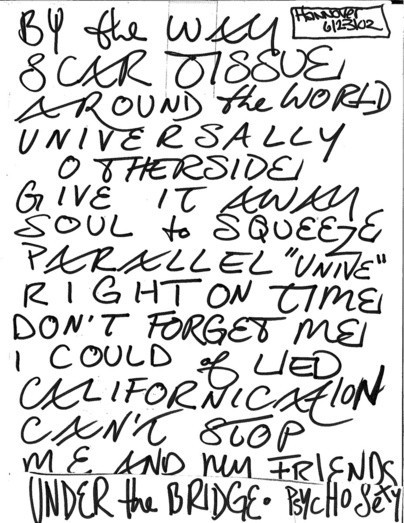 Hannover
6/23/02
BY the WAY
SCAR TISSUE
AROUND the WORLD
UNIVERSALLY
OTHERSIDE
GIVE IT AWAY
SOUL to SQUEEZE
PARALLEL "UNIVE"
RIGHT ON TIME
DON'T FORGET ME
I COULD of LIED
CALIFORNICATION
CAN'T STOP
ME AND MY FRIENDS
UNDER the BRIDGE. PSYCHO SeXY